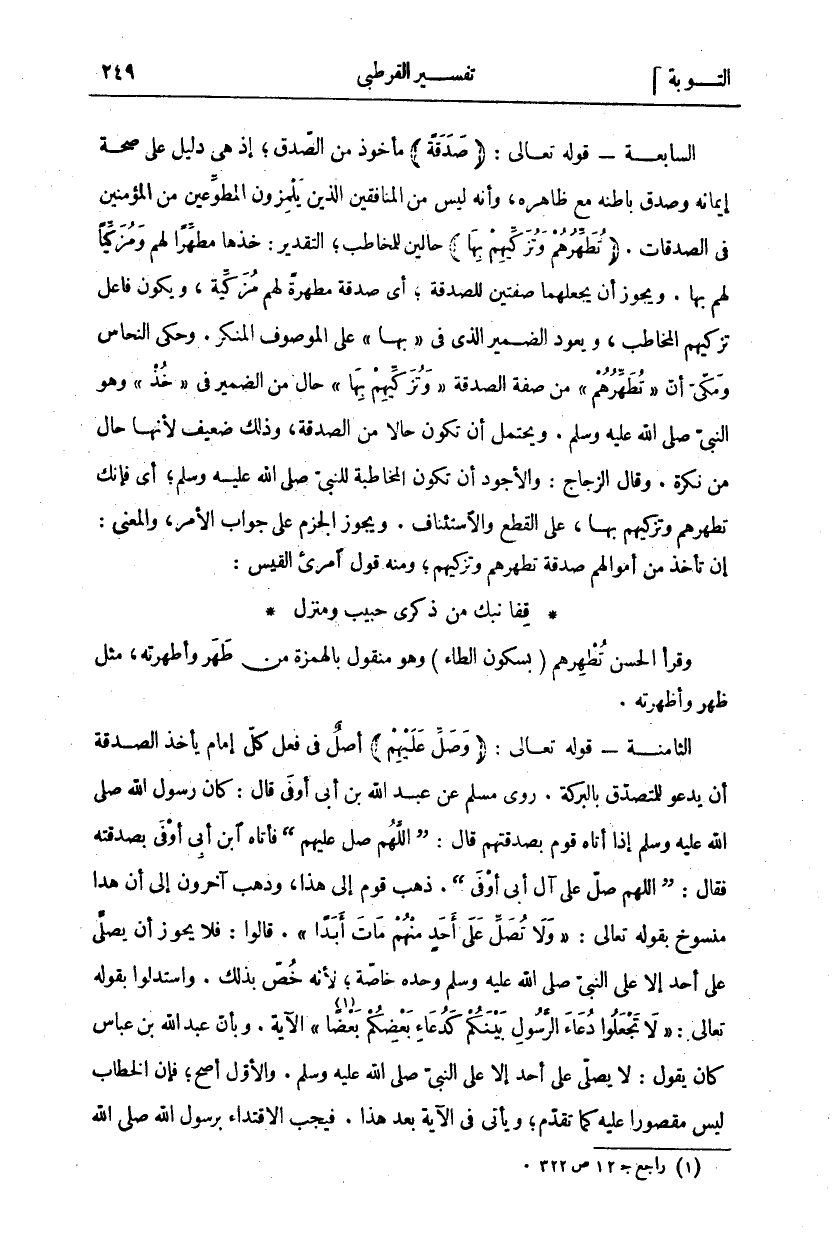 التـــوبة ] تفســـير القرطبى ٢٤٩
السابعـــة — قوله تعـالى : ﴿ صَدَقَةً ﴾ مأخوذ من الصّدق ؛ إذ هى دليل على صحة
إيمانه وصدق باطنه مع ظاهره، وأنه ليس من المنافقين الذين يَلْمِزون المطوِّعين من المؤمنين
فى الصدقات . ﴿ تُطَهِّرُهُمْ وَتُزَكِّيهِمْ بِهَا ﴾ حالين للخاطب ؛ التقدير : خذها مطهِّرًا لهم ومُزَكِّيًا
لهم بها . ويجوز أن يجعلهما صفتين للصدقة ؛ أى صدقة مطهرةً لهم مُزَكِّية ، ويكون فاعل
تزكيهم المخاطب ، ويعود الضـمير الذى فى « بهـا » على الموصوف المنكر . وحكى النحاس
ومَكّىّ أنّ « تُطَهِّرُهُمْ » من صفة الصدقة « وَتُزَكِّيهِمْ بِهَا » حال من الضمير فى « خُذْ » وهو
النبىّ صلى الله عليه وسلم . ويحتمل أن تكون حالا من الصدقة، وذلك ضعيف لأنهـا حال
من نكرة . وقال الزجاج : والأجود أن تكون المخاطبة للنبىّ صلى الله عليـه وسلم؛ أى فإنك
تطهرهم وتزكيهم بهـا ، على القطع والآستئناف . ويجوز الجزم على جواب الأمر، والمعنى :
إن تأخذ من أموالهم صدقة تطهرهم وتزكيهم؛ ومنه قول آمرئ القيس :
* قِفا نبك من ذكرى حبيب ومنزل *
وقرأ الحسن تُطْهِرهم ( بسكون الطاء ) وهو منقول بالهمزة من طَهَر وأطهرته ، مثل
ظهر وأظهرته .
الثامنــة — قوله تعـالى : ﴿ وَصَلِّ عَلَيْهِمْ ﴾ أصلٌ فى فعل كلّ إمام يأخذ الصـدقة
أن يدعو للتصدّق بالبركة . روى مسلم عن عبـد الله بن أبى أوفَى قال : كان رسول الله صلى
الله عليه وسلم إذا أتاه قوم بصدقتهم قال : ” اللَّهُم صل عليهم “ فأتاه آبن أبِى أَوْفَى بصدقته
فقال : ” اللهم صلّ على آل أبى أوْفَى “ . ذهب قوم إلى هذا، وذهب آخرون إلى أن هدا
منسوخ بقوله تعالى : « وَلَا تُصَلِّ عَلَى أَحَدٍ مِنْهُمْ مَاتَ أَبَدًا » . قالوا : فلا يجوز أن يصلَّى
على أحد إلا على النبىّ صلى الله عليه وسلم وحده خاصّة ؛ لأنه خُصّ بذلك . واستدلوا بقوله
تعالى : « لَا تَجْعَلُوا دُعَاءَ الرَّسُولِ بَيْنَكُمْ كَدُعَاءِ بَعْضِكُمْ بَعْضًا (١) » الآية . وبأن عبدالله بن عباس
كان يقول : لا يصلَّى على أحد إلا على النبىّ صلى الله عليه وسلم . والأوّل أصح؛ فإن الخطاب
ليس مقصورا عليه كما تقدّم؛ ويأتى فى الآية بعد هذا . فيجب الاقتداء برسول الله صلى الله
(١) راجع جـ ١٢ ص ٣٢٢ .